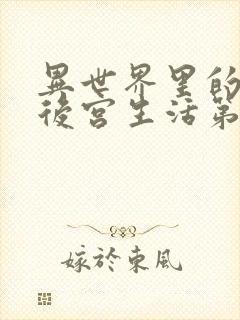 異世界里的
後宮生活第
嫁於東風